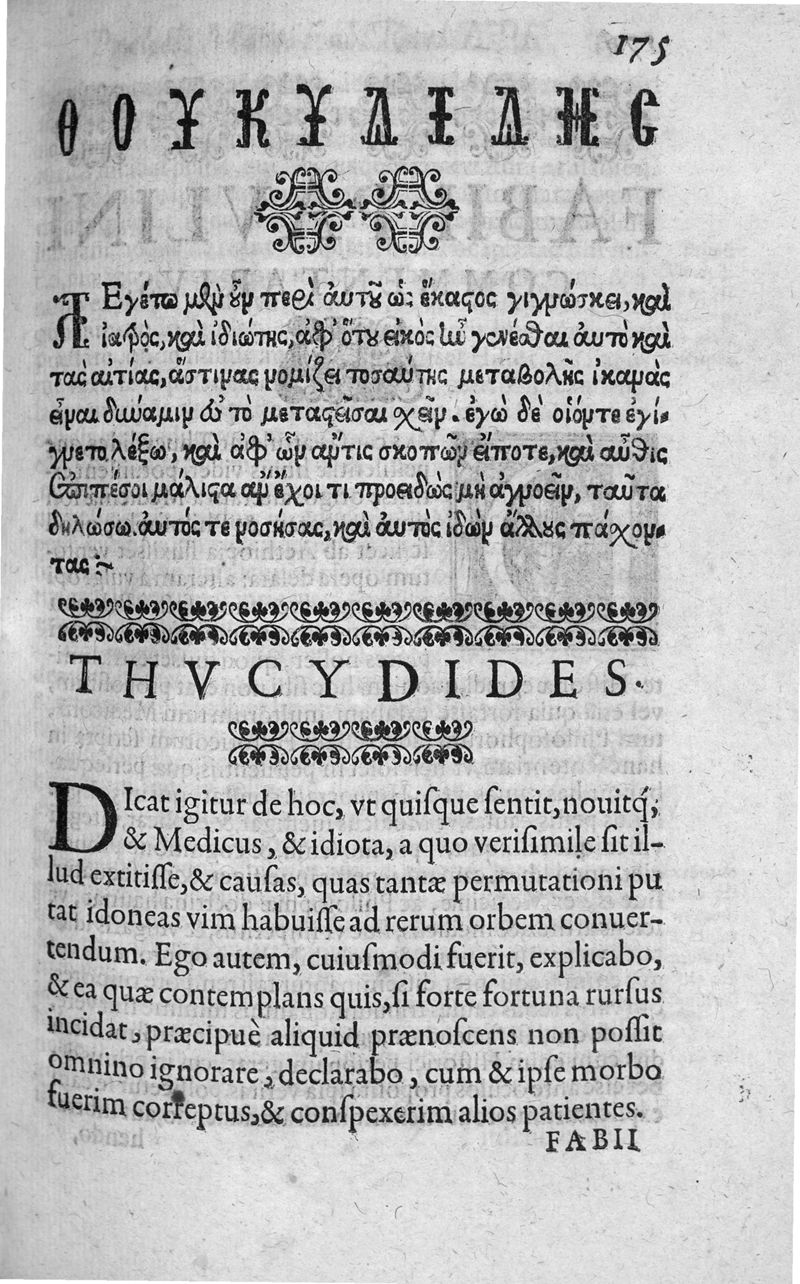 175
ΘΟΥΚΥΔΙΔΗΣ
ΛΕγέτω μὲν οὖν περὶ αὐτοῦ ὡς ἕκαςος γιγνώσκει, καὶ
ἰατρὸς, καὶ ἰδιώτης, ἀφ' ὅτου εἰκὸς ἦν γενέσθαι αὐτὸ καὶ
τὰς αἰτίας, ἅστινας νομίζει τοσαύτης μεταβολῆς ἱκανὰς
εἶναι δύναμιν ἐς τὸ μεταςῆσαι σχεῖν. ἐγὼ δὲ οἷόντε ἐγί-
γνετο λέξω, καὶ ἀφ' ὧν ἄν τις σκοπῶν εἴποτε, καὶ αὖθις
ἐπιπέσοι μάλιςα ἂν ἔχοι τι προειδὼς μὴ ἀγνοεῖν, ταῦτα
δηλώσω. αὐτός τε νοσήσας, καὶ αὐτὸς ἰδὼν ἄλλους πάσχον-
τας :~
THVCYDIDES.
DIcat igitur de hoc, vt quiſque ſentit, nouitq́;
& Medicus, & idiota, a quo veriſimile ſit il-
lud extitiſſe, & cauſas, quas tantæ permutationi pu
tat idoneas vim habuiſſe ad rerum orbem conuer-
tendum. Ego autem, cuiuſmodi fuerit, explicabo,
& ea quæ contemplans quis, ſi forte fortuna rurſus
incidat, præcipuè aliquid prænoſcens non poſſit
omnino ignorare, declarabo, cum & ipſe morbo
fuerim correptus, & conſpexerim alios patientes.
FABII